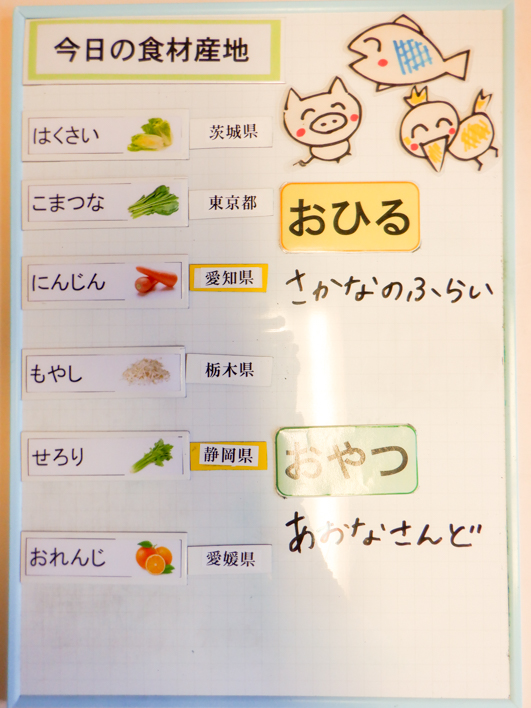 今日の食材産地
はくさい 茨城県
こまつな 東京都
にんじん 愛知県
もやし 栃木県
せろり 静岡県
おれんじ 愛媛県
おひる
さかなのふらい
おやつ
あおなさんど